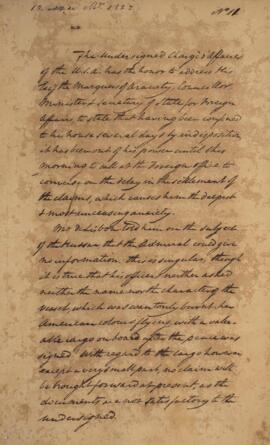 Nº 11
The Undersigned Chargé d'Affaires
of the U.S.A. has the honor to address His
Excy the Marquess of Aracaty, Counsellor
Minister & Secretary of State for Foreign
Affairs, to state that having been confined
to his house several days by indisposition
it has been out of his power until this
morning to call at the Foreign office to
converse on the delay in the settlement of
the claims, which causes him the deepest
& most unceasing anxiety.
Mr de Lisboa told him on the subject
of the Hussar that the Admiral could give
no information. This is singular, though
it is true that his officer neither asked
neither the name nor the character of the
vessel, which was wantonly burnt, her
American colours flying, with a valu-
able cargo on board after the peace was
signed. With regard to the cargo however
except a very small part, no claim will
be brought forward at present, as the
documents are not satisfactory to the
undersigned.